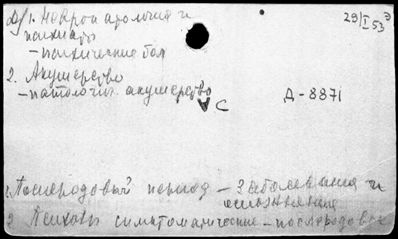 1. Невропатология и
психиатр
- психические бол
29/I 53
2. Акушерство
- патология акушерство
с
Д-8871
1. Послеродовый период - Заболевания и
осложнения
2 Психозы симптоматические - послеродовые